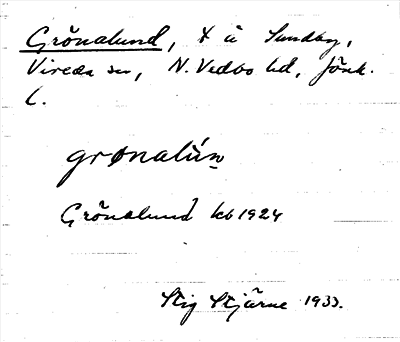 Grönalund, x å Sundby,
Vireda sn, N. Vedbo hd, Jönk.
L.
grønalúṇ
Grönalund kb 1924
Stig Stjärne 1933.